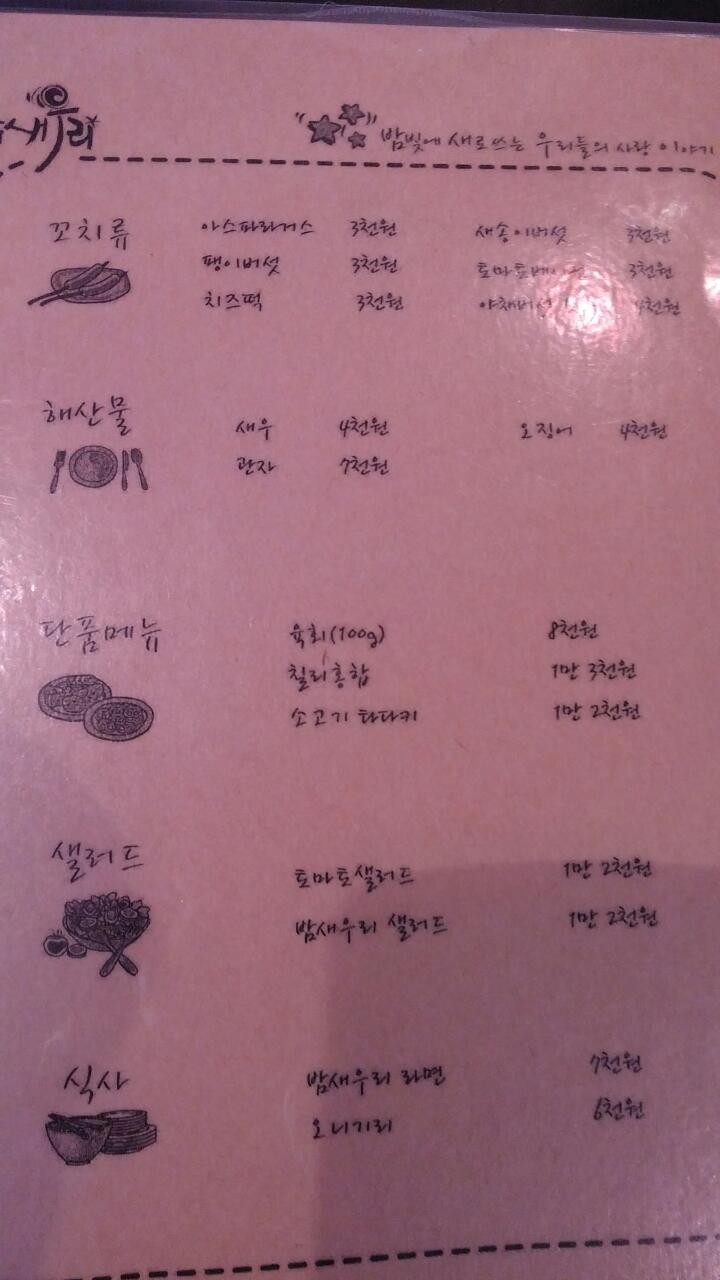 새우리
밤빛에 새로쓰는 우리들의 사랑 이야기
꼬치류
아스파라거스 3천원 새송이버섯 3천원
팽이버섯 3천원 토마토베이컨 3천원
치즈떡 3천원 야채버섯 4천원
해산물
새우 4천원 오징어 4천원
관자 7천원
단품메뉴
육회(100g) 8천원
칠리홍합 1만 3천원
소고기 타다키 1만 2천원
샐러드
토마토샐러드 1만 2천원
밤새우리 샐러드 1만 2천원
식사
밤새우리 라면 7천원
오니기리 6천원